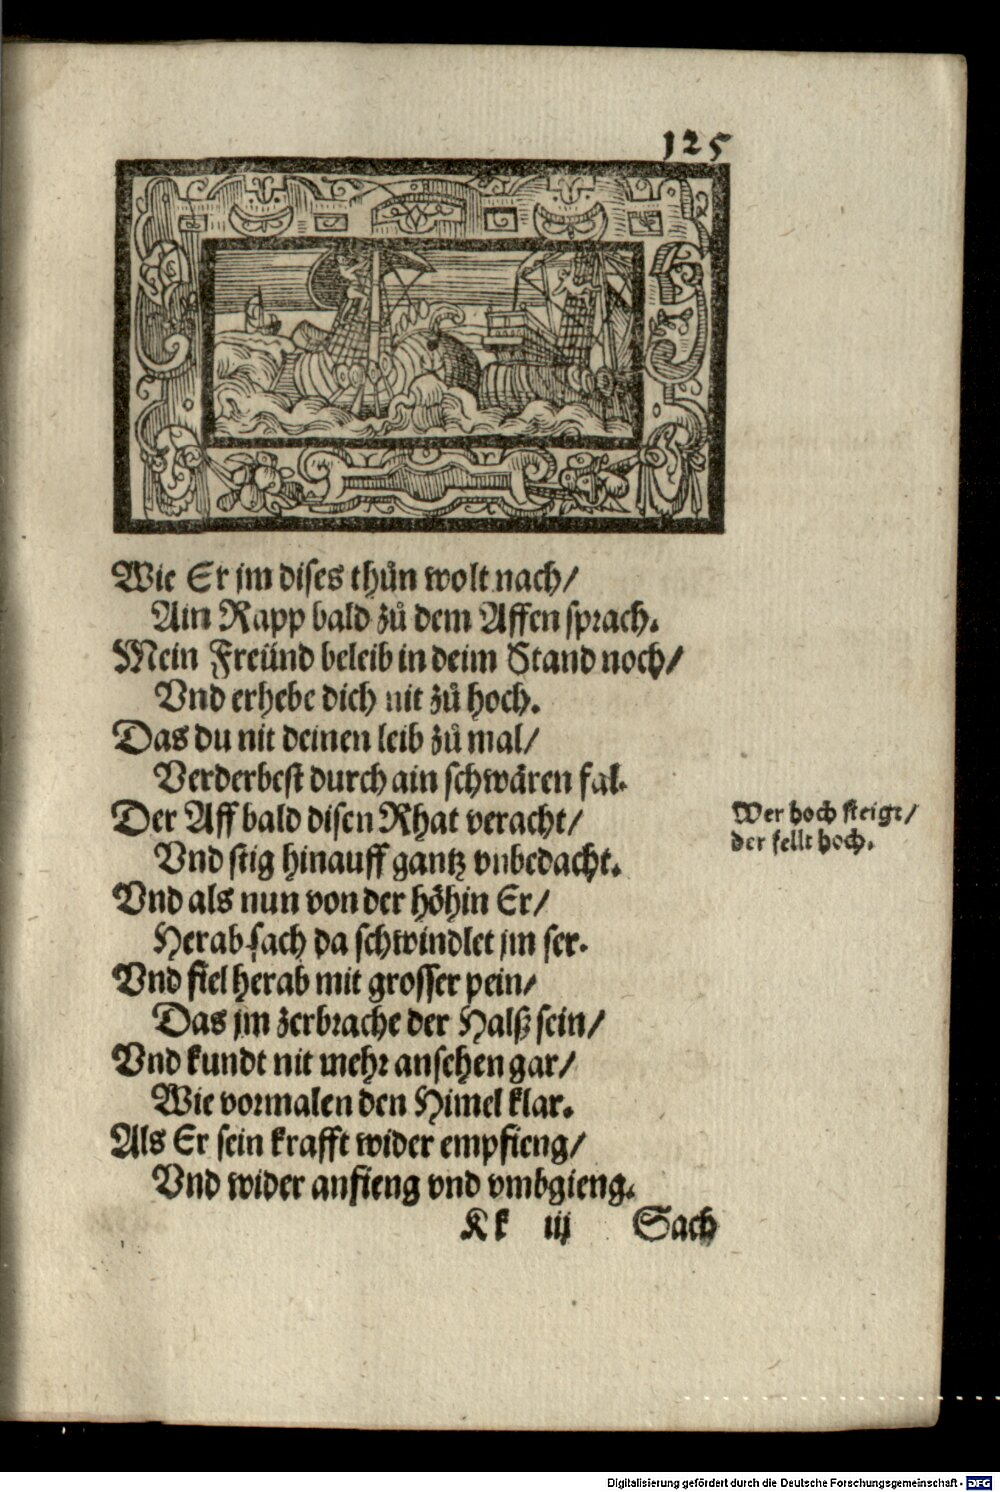 125
Wie Er jm dises thůn wolt nach/
Ain Rapp bald zů dem Affen sprach.
Mein Freünd beleib in deim Stand noch/
Vnd erhebe dich nit zů hoch.
Das du nit deinen leib zů mal/
Verderbest durch ain schwären fal.
Der Aff bald disen Rhat veracht/
Vnd stig hinauff gantz vnbedacht.
Wer hoch steigt/
der fellt hoch.
Vnd als nun von der höhin Er/
Herab sach da schwindlet jm ser.
Vnd fiel herab mit grosser pein/
Das jm zerbrache der Halß sein/
Vnd kundt nit mehr ansehen gar/
Wie vormalen den Himel klar.
Als Er sein krafft wider empfieng/
Vnd wider anfieng vnd vmbgieng.
Kk iij Sach
Digitalisierung gefördert durch die Deutsche Forschungsgemeinschaft - DFG